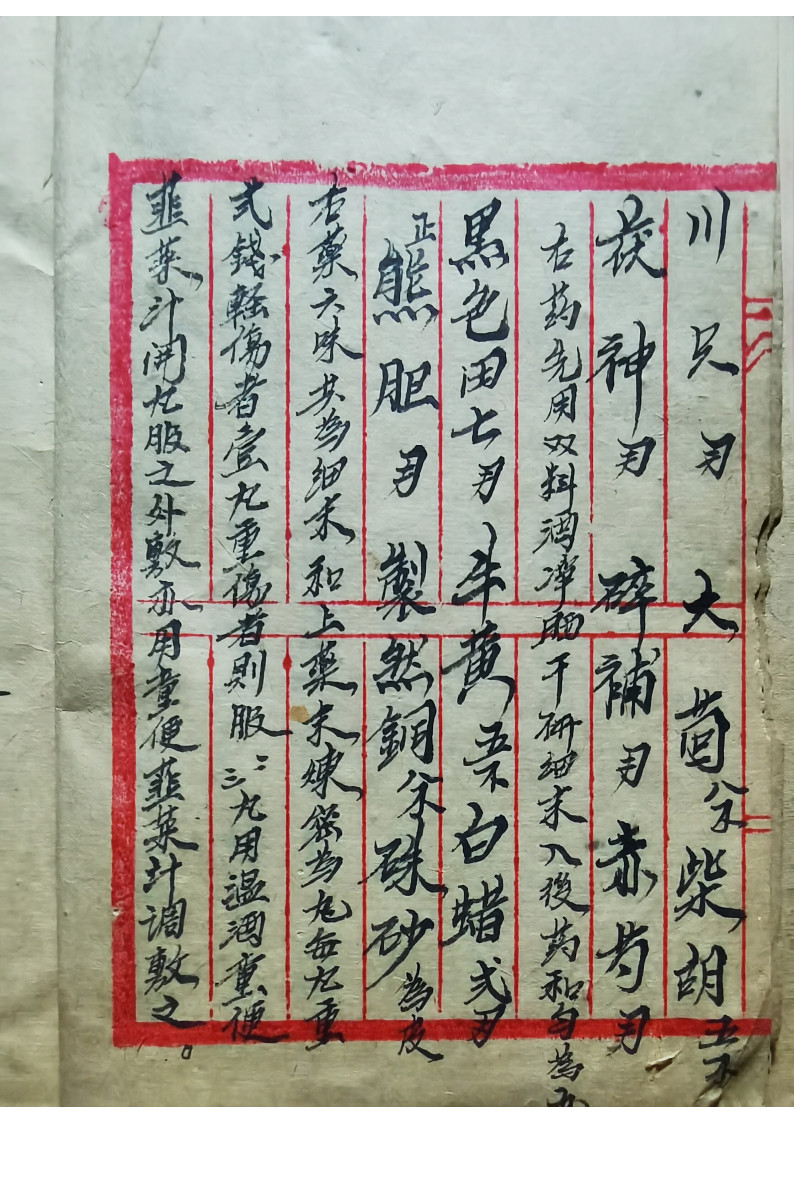 川只 大茴 柴胡
茯神 碎補 赤芍
右药先用双料酒 晒干研細末入後药和匀為
黑色田七 牛黄 白蜡弍
正熊胆 製然銅 硃砂為皮
右藥六味共為細末和上藥末煉 為丸每丸重
弍錢輕傷者壹丸重傷者則服二三丸用温酒童便
韮菜汁開丸服之外敷亦用童便韮菜汁調敷之。